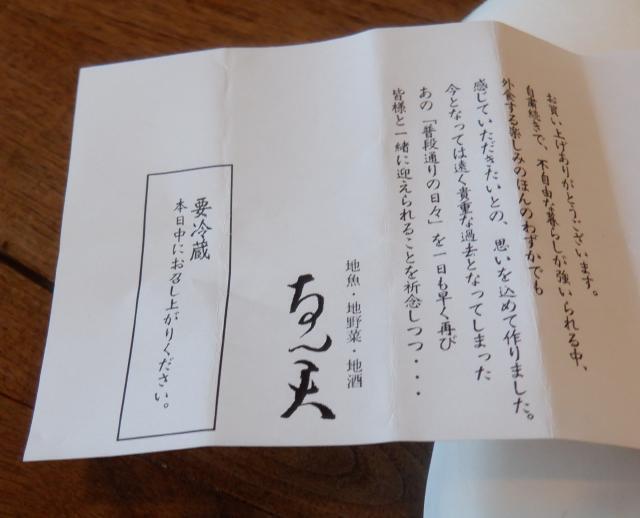 お買い上げありがとうございます。
自粛続きで、不自由な暮らしが強いられる中、
外食する楽しみのほんのわずかでも
感じていただきたいとの、思いを込めて作りました。
今となっては遠く貴重な過去となってしまった
あの「普段通りの日々」を一日も早く再び
皆様と一緒に迎えられることを祈念しつつ・・・
地魚・地野菜・地酒
要冷蔵
本日中にお召し上がりください。